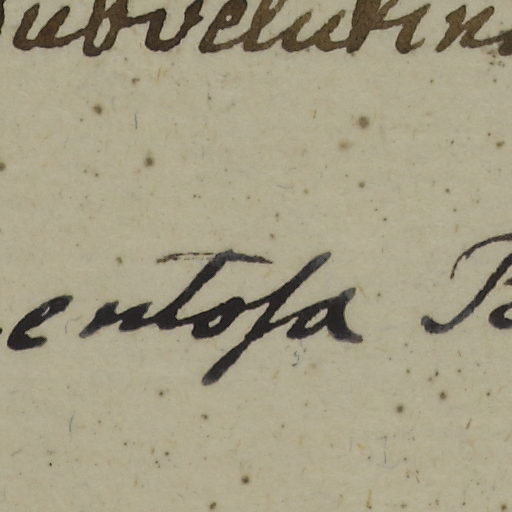 subvelutin
entosa B